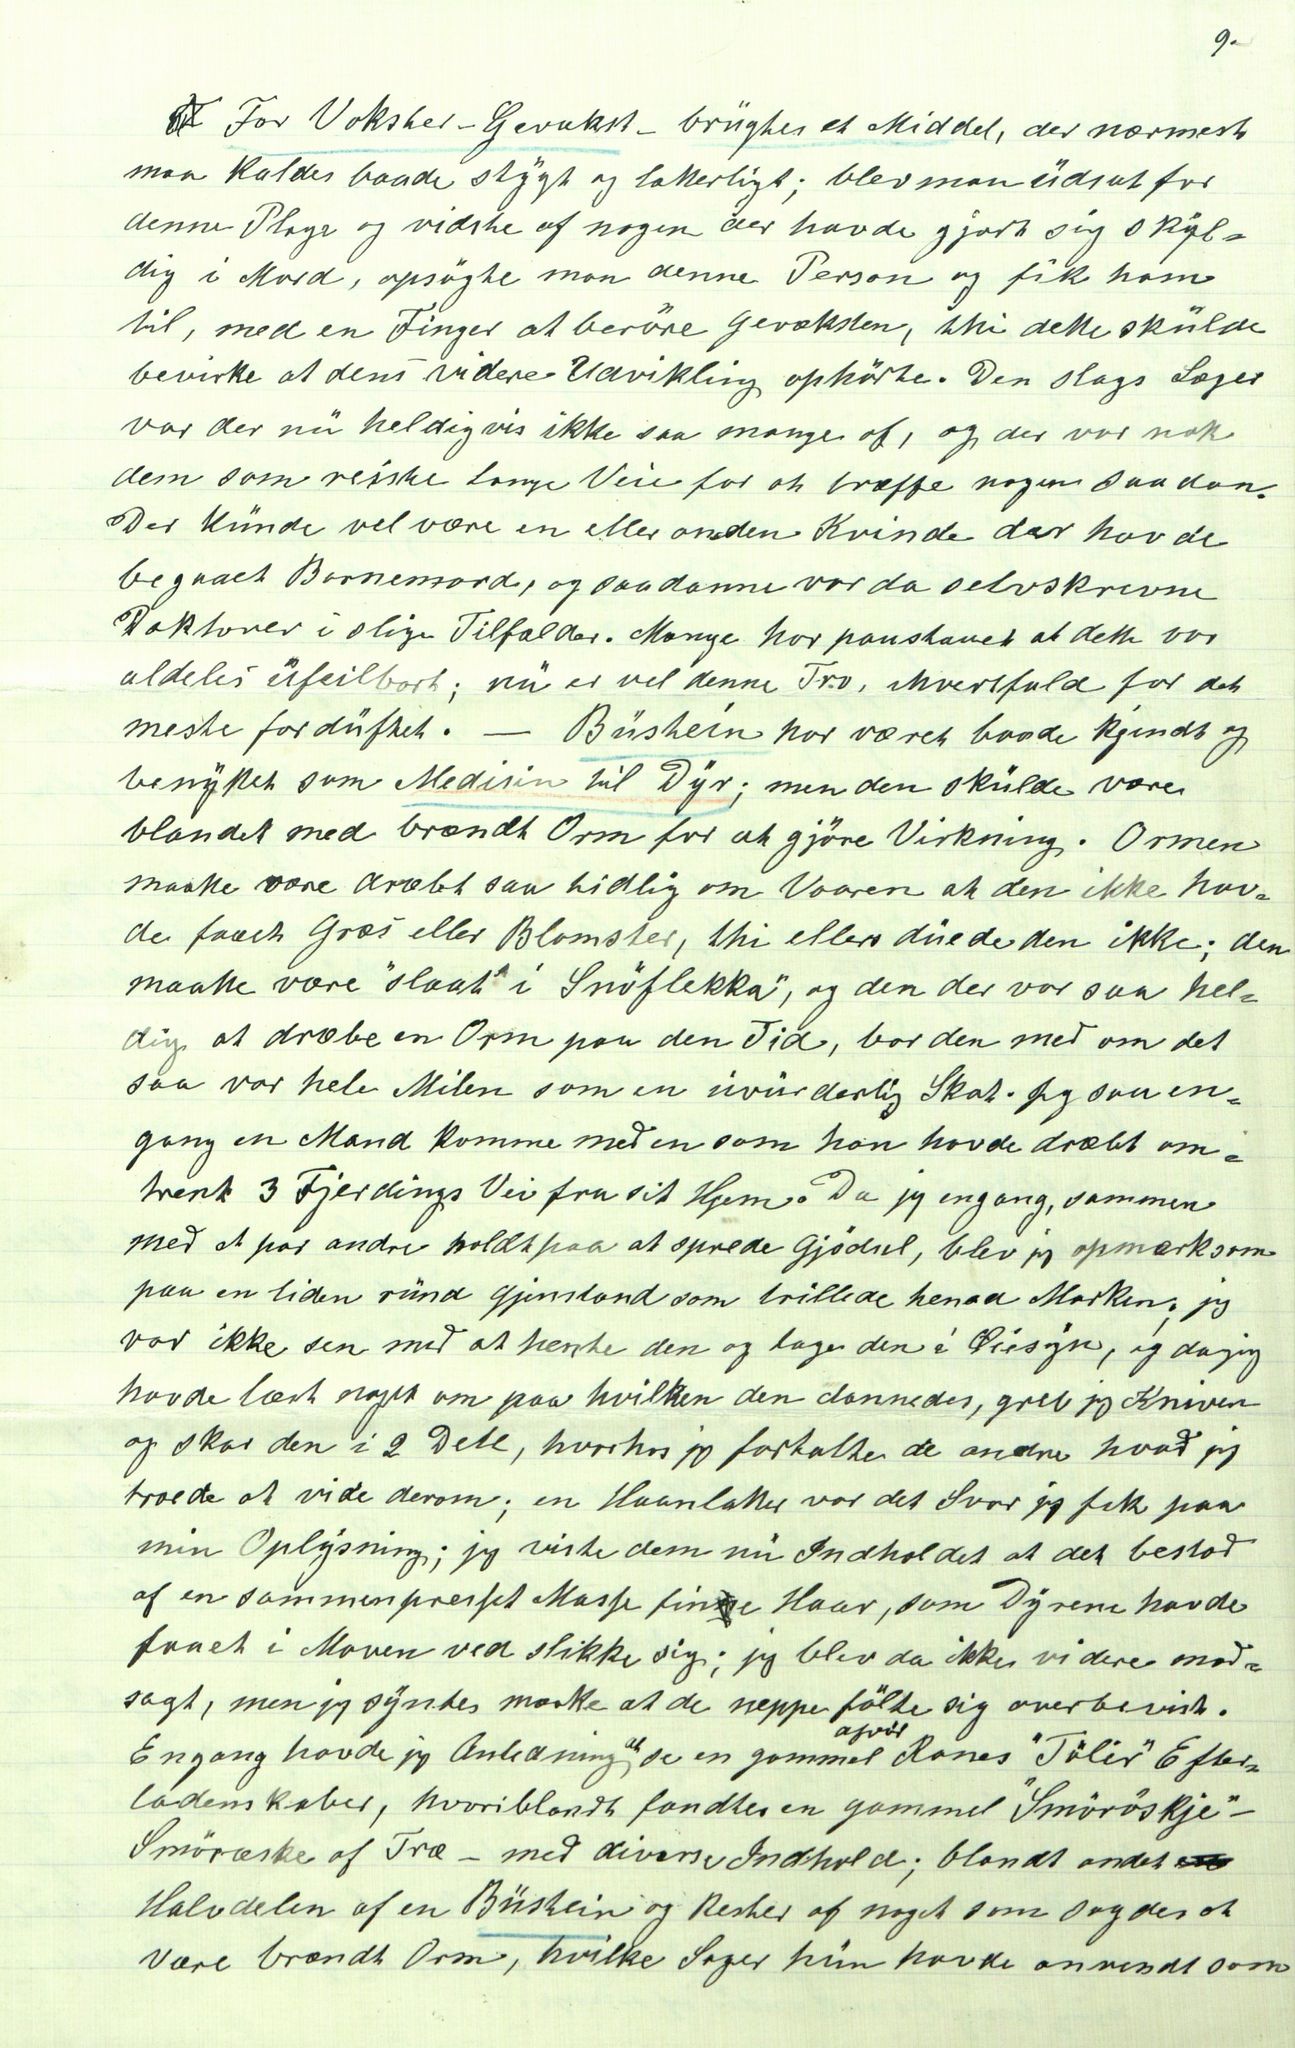 9.
For Vokster - Gevækst - brügtes et Middel, der nærmest
maa kaldes baade stÿgt og latterligt; blev man üdsat for
denne Plage og vidste af nogen der havde gjort sig skÿl=
dig i Mord, opsögte man denne Person og fik ham
til, med en Finger at beröre Gevæksten, thi dette skülde
bevirke at dens videre Udvikling ophörte. Den slags Læger
var der nü heldigvis ikke saa mange af, og der var nok
dem som reiste lange Veie for at træffe nogen saadan.
Der künde vel være en eller anden Kvinde der havde
begaaet Barnemord, og saadanne var da selvskrevne
Doktorer i slige Tilfælder. Mange har paastaaet at dette var
aldeles üfeilbart; nü er vel denne Tro, ihvertfald for det
meste fordüftet. — Büstein har været baade kjendt og
benÿttet som Medisin til Dÿr; men den skülde være
blandet med brændt Orm for at gjöre Virkning. Ormen
maatte være dræbt saa tidlig om Vaaren at den ikke hav=
de faaet Græs eller Blomster, thi ellers düede den ikke; den
maatte være "slaat" i Snöflekka", og den der var saa hel=
dig at dræbe en Orm paa den Tid, bar den med om det
saa var hele Milen som en üvürderlig Skat. Jeg saa en=
gang en Mand komme med en som han havde dræbt om=
trent 3 Fjerdings Vei fra sit Hjem. Da jeg engang, sammen
med et par andre holdt paa at sprede Gjödsel, blev jeg opmærksom
paa en liden ründ Gjenstand som trillede henad Marken; jeg
var ikke sen med at hente den og tage den i Öiesÿn, og da jeg
havde læst noget om paa hvilken den dannedes, greb jeg Kniven
og skar den i 2 Dele, hvorhos jeg fortalte de andre hvad jeg
troede at vide derom; en Haanlatter var det Svar jeg fik paa
min Oplÿsning; jeg viste dem nü Indholdet at det bestod
af en sammenpresset Masse fine Haar, som Dÿrene havde
faaet i Maven ved slikke sig; jeg blev da ikke videre mod=
sagt, men jeg sÿntes mærke at de neppe fölte sig overbevist.
Engang havde jeg Anledning at se en gammel afdöd Kones "Tölir" Efter=
ladenskaber, hvoriblandt fandtes en gammel "Smöröskje" -
Smöræske af Træ - med diverse Indhold; blandt andet
Halvdelen af en Büstein og Rester af noget som sagdes at
være brændt Orm, hvilke Sager hün havde anvendt som